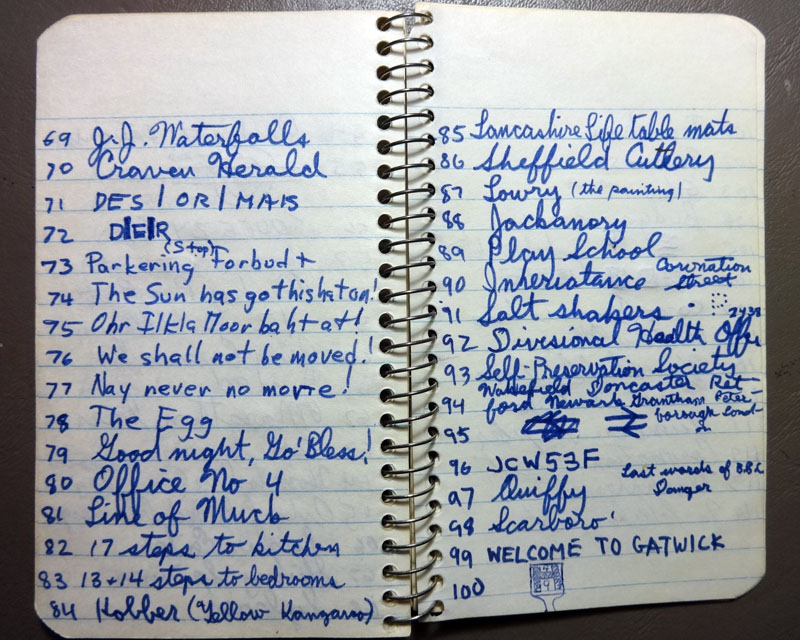 69 J.J. Waterfalls
70 Craven Herald
71 DES/OR/MAIS
72 DER
73 Parkering (Stop) Forbudt
74 The Sun has got his hat on!
75 Ohr Ilkla Moor baht at!
76 We shall not be moved!
77 Nay never no more!
78 The Egg
79 Good night, Go' Bless!
80 Office No 4
81 Line of Muck
82 17 steps to kitchen
83 13+14 steps to bedrooms
84 Kobber (Yellow Kangaroo)
85 Lancashire Life table mats
86 Sheffield Cutlery
87 Lowry (the painting)
88 Jackanory
89 Play School
90 Inheriatance Cornation
Street
91 Salt shakers
92 Divisional Health Offer
93 Self-Preservation Society
94 Wakefield Doncaster Ret-
ford Newark Grantham Peter-
borough Lond-
on
95
96 JCW53F
Last words of
Danger
97 Quiffy
98 Scarboro'
99 WELCOME TO GATWICK
100